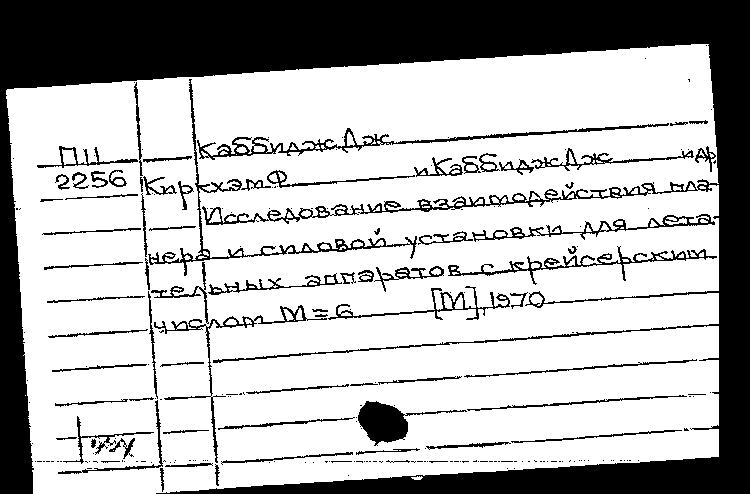 П11 Каббидж Дж
2256 Киркхэм Ф и Каббидж Дж и др
Исследование взаимодействия пла-
нера и силовой установки для лета-
тельных аппаратов с крейсерским
числом М = 6 [М], 1970